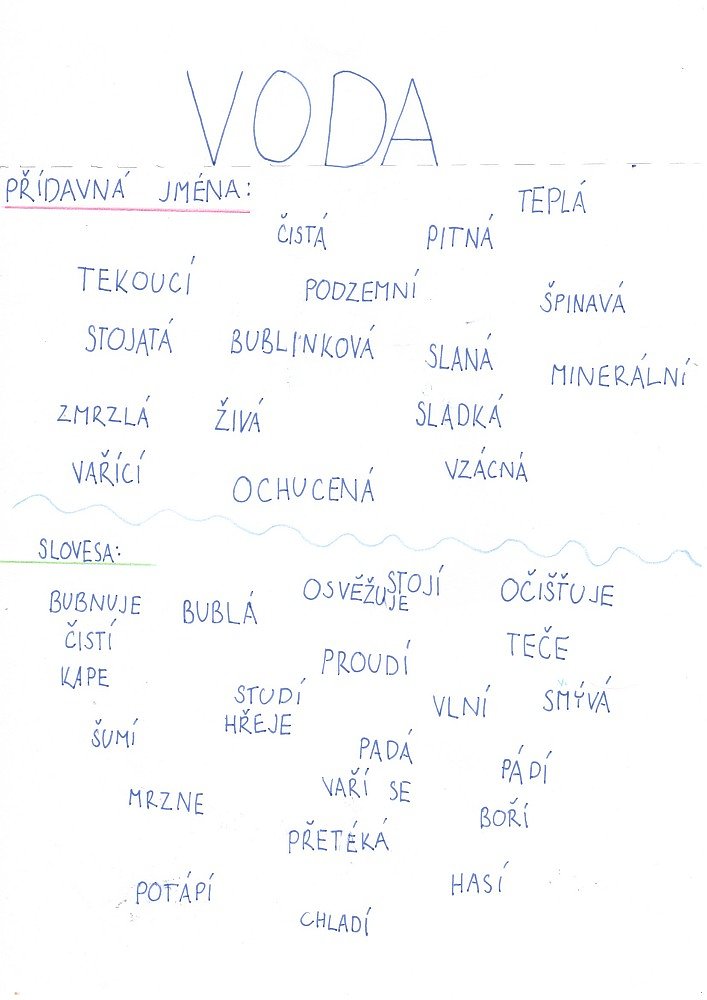 VODA
PŘÍDAVNÁ JMÉNA:
TEPLÁ
ČISTÁ PITNÁ
TEKOUCÍ PODZEMNÍ ŠPINAVÁ
STOJATÁ BUBLINKOVÁ SLANÁ MINERÁLNÍ
ZMRZLÁ ŽIVÁ SLADKÁ
VAŘÍCÍ OCHUCENÁ VZÁCNÁ
SLOVESA:
BUBNUJE BUBLÁ OSVĚŽUJE STOJÍ OČIŠŤUJE
ČISTÍ PROUDÍ TEČE
KAPE STUDÍ VLNÍ SMÝVÁ
ŠUMÍ HŘEJE PADÁ PÁDÍ
MRZNE VAŘÍ SE BOŘÍ
PŘETÉKÁ
POTÁPÍ HASÍ
CHLADÍ